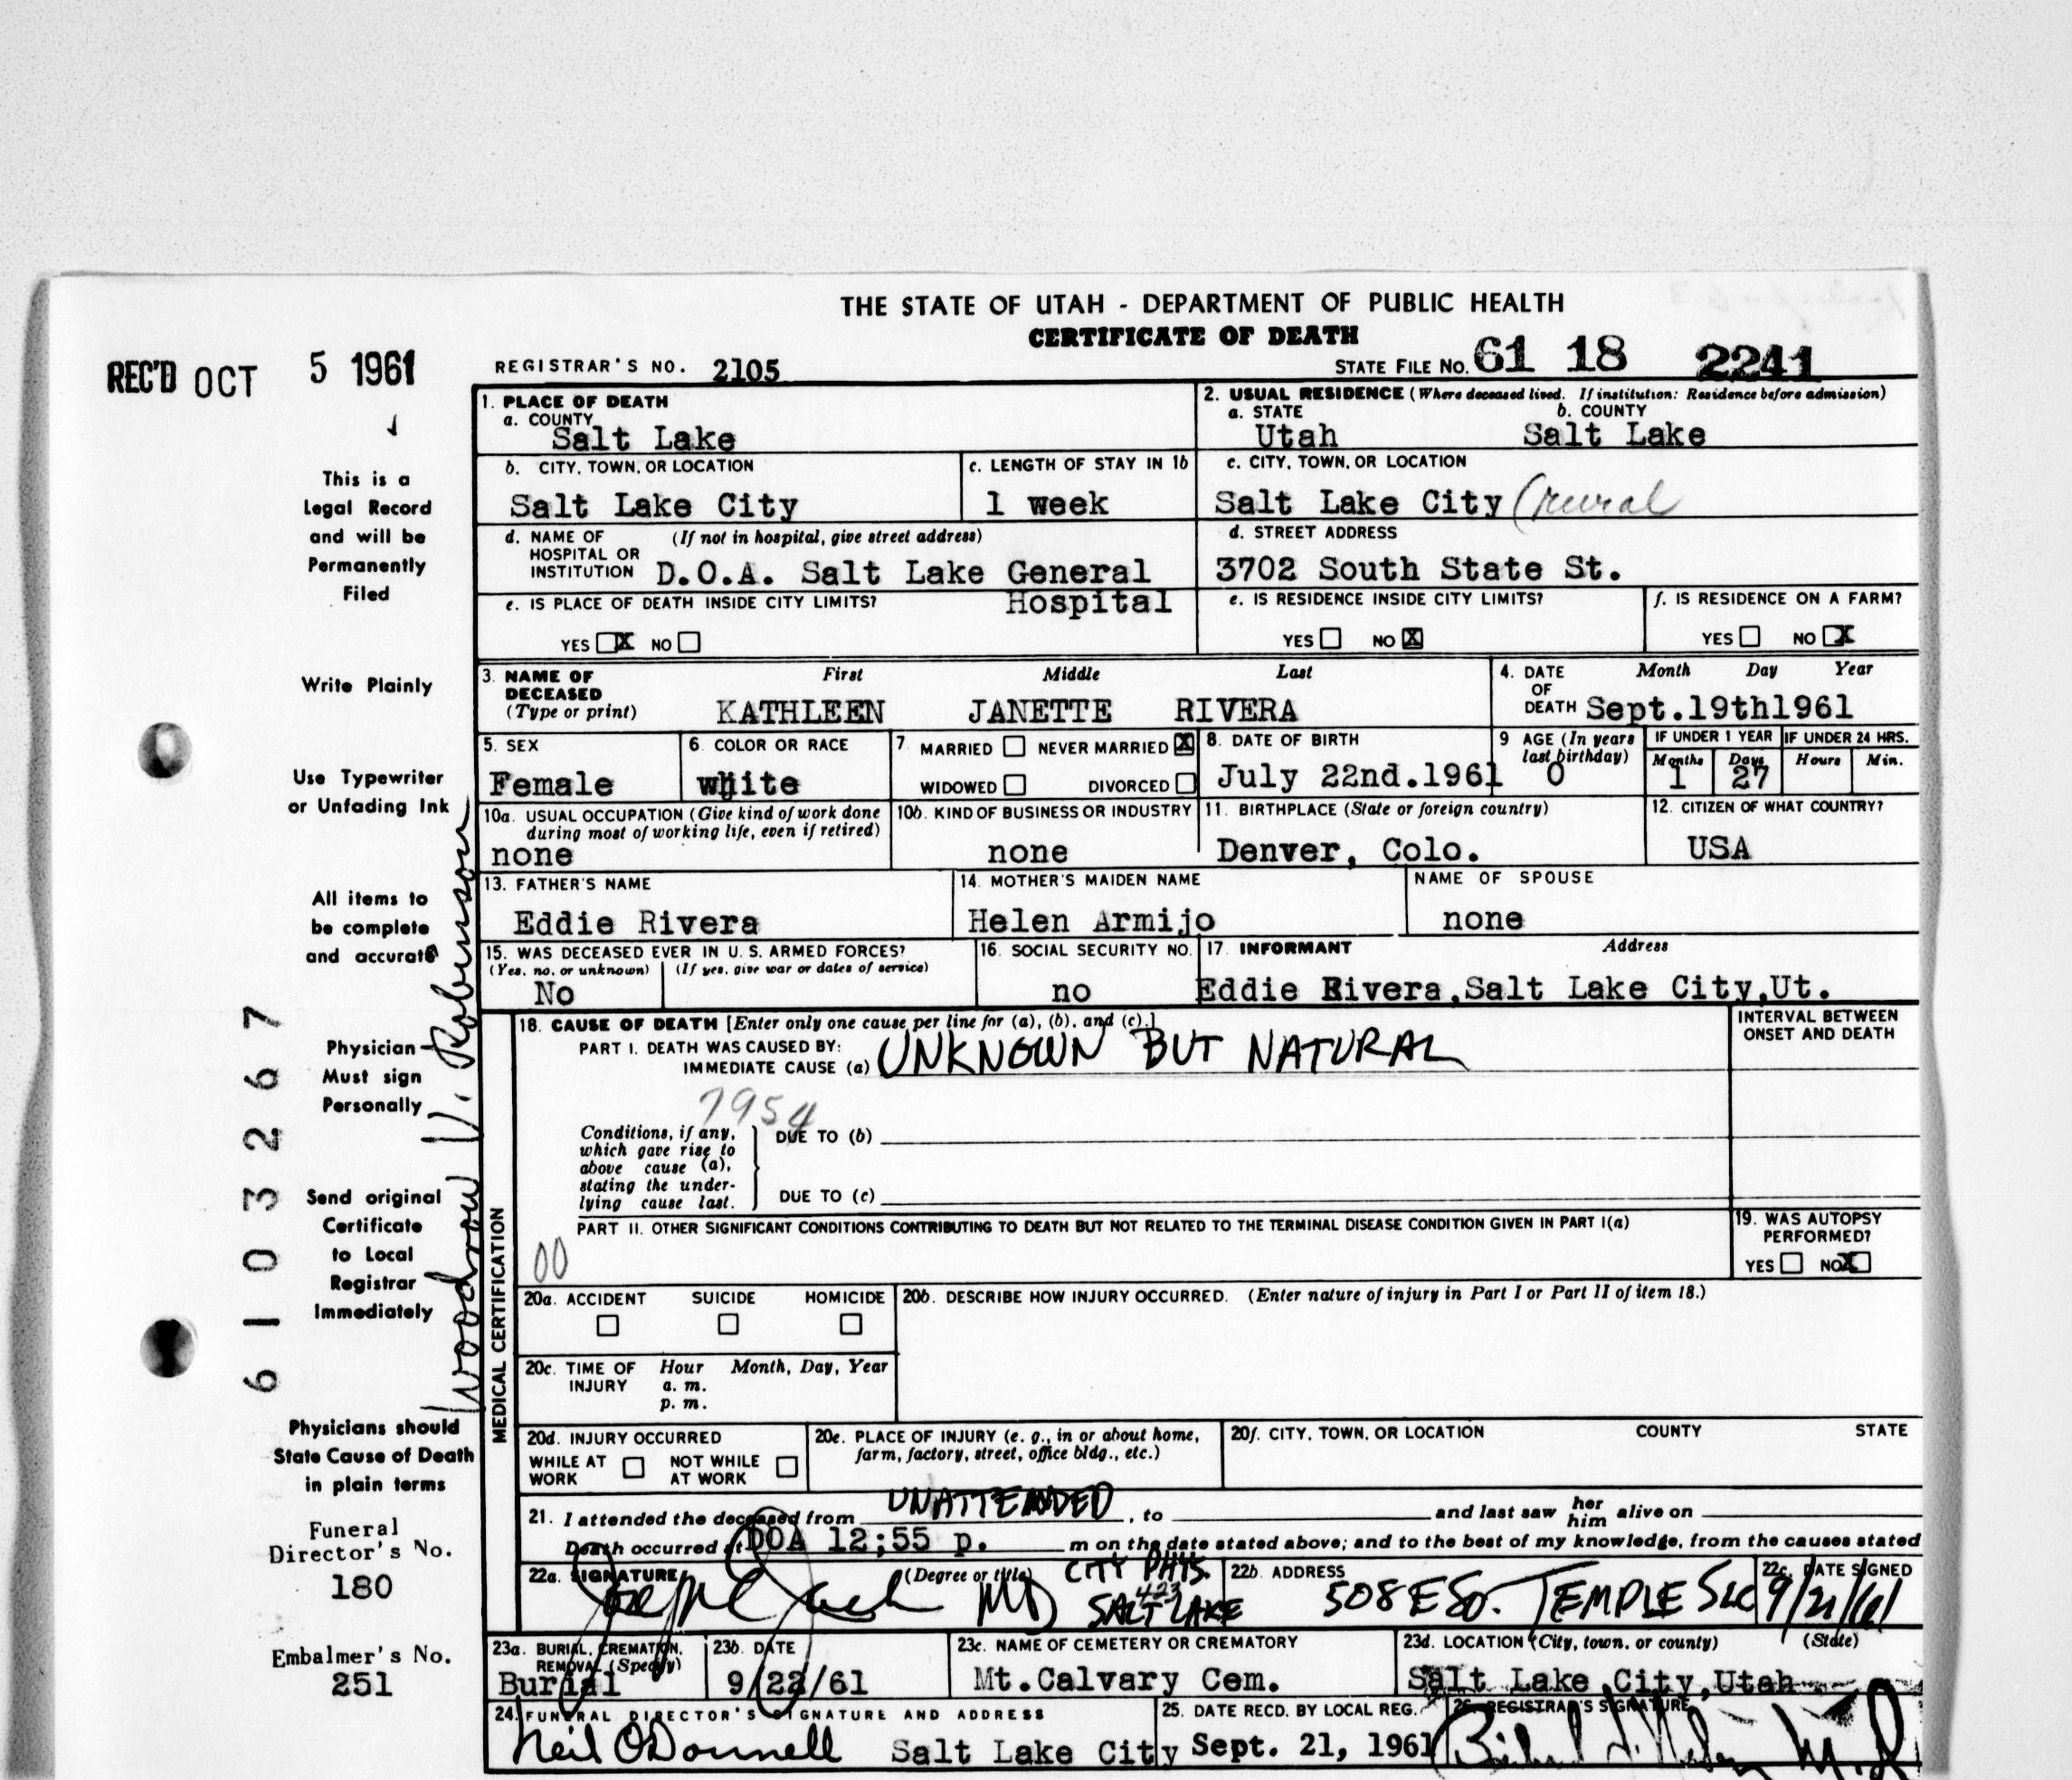 THE STATE OF UTAH - DEPARTMENT OF PUBLIC HEALTH
CERTIFICATE OF DEATH
REC'D OCT 5 1961
REGISTRAR'S NO. 2105
STATE FILE NO. 61 18 2241
1. PLACE OF DEATH
a. COUNTY
Salt Lake
2. USUAL RESIDENCE (Where deceased lived. If institution: Residence before admission)
a. STATE b. COUNTY
Utah Salt Lake
b. CITY, TOWN, OR LOCATION
Salt Lake City
c. LENGTH OF STAY IN 1b
1 week
c. CITY, TOWN, OR LOCATION
Salt Lake City (rural
d. NAME OF HOSPITAL OR INSTITUTION (If not in hospital, give street address)
D.O.A. Salt Lake General
Hospital
d. STREET ADDRESS
3702 South State St.
e. IS PLACE OF DEATH INSIDE CITY LIMITS?
YES X NO
e. IS RESIDENCE INSIDE CITY LIMITS?
YES NO X
f. IS RESIDENCE ON A FARM?
YES NO X
3. NAME OF DECEASED (Type or print)
First Middle Last
KATHLEEN JANETTE RIVERA
4. DATE OF DEATH Month Day Year
Sept.19th1961
5. SEX
Female
6. COLOR OR RACE
white
7. MARRIED NEVER MARRIED X
WIDOWED DIVORCED
8. DATE OF BIRTH
July 22nd.1961
9 AGE (In years last birthday)
0
IF UNDER 1 YEAR
Months Days
1 27
IF UNDER 24 HRS.
Hours Min.
10a. USUAL OCCUPATION (Give kind of work done during most of working life, even if retired)
none
10b. KIND OF BUSINESS OR INDUSTRY
none
11. BIRTHPLACE (State or foreign country)
Denver, Colo.
12. CITIZEN OF WHAT COUNTRY?
USA
13. FATHER'S NAME
Eddie Rivera
14. MOTHER'S MAIDEN NAME
Helen Armijo
NAME OF SPOUSE
none
15. WAS DECEASED EVER IN U. S. ARMED FORCES?
(Yes, no, or unknown) (If yes, give war or dates of service)
No
16. SOCIAL SECURITY NO.
no
17. INFORMANT Address
Eddie Rivera,Salt Lake City,Ut.
MEDICAL CERTIFICATION
18. CAUSE OF DEATH [Enter only one cause per line for (a), (b), and (c).]
PART I. DEATH WAS CAUSED BY:
IMMEDIATE CAUSE (a) UNKNOWN BUT NATURAL
INTERVAL BETWEEN ONSET AND DEATH
7954
Conditions, if any, which gave rise to above cause (a), stating the under-lying cause last.
DUE TO (b)
DUE TO (c)
PART II. OTHER SIGNIFICANT CONDITIONS CONTRIBUTING TO DEATH BUT NOT RELATED TO THE TERMINAL DISEASE CONDITION GIVEN IN PART I(a)
00
19. WAS AUTOPSY PERFORMED?
YES NO X
20a. ACCIDENT SUICIDE HOMICIDE
20b. DESCRIBE HOW INJURY OCCURRED. (Enter nature of injury in Part I or Part II of item 18.)
20c. TIME OF INJURY Hour Month, Day, Year
a. m.
p. m.
20d. INJURY OCCURRED
WHILE AT WORK NOT WHILE AT WORK
20e. PLACE OF INJURY (e. g., in or about home, farm, factory, street, office bldg., etc.)
20f. CITY, TOWN, OR LOCATION COUNTY STATE
21. I attended the deceased from UNATTENDED, to and last saw her him alive on
Death occurred at DOA 12;55 p. m on the date stated above; and to the best of my knowledge, from the causes stated
22a. SIGNATURE (Degree or title)
MD CITY PHYS.
423
SALT LAKE
22b. ADDRESS
508 E So. TEMPLE SLC
22c. DATE SIGNED
9/21/61
23a. BURIAL, CREMATION, REMOVAL (Specify)
Burial
23b. DATE
9/22/61
23c. NAME OF CEMETERY OR CREMATORY
Mt.Calvary Cem.
23d. LOCATION (City, town, or county) (State)
Salt Lake City,Utah
24. FUNERAL DIRECTOR'S SIGNATURE AND ADDRESS
Neil O'Donnell Salt Lake City
25. DATE RECD. BY LOCAL REG.
Sept. 21, 1961
26. REGISTRAR'S SIGNATURE
This is a
Legal Record
and will be
Permanently
Filed
Write Plainly
Use Typewriter
or Unfading Ink
All items to
be complete
and accurate
Physician
Must sign
Personally
Send original
Certificate
to Local
Registrar
Immediately
Physicians should
State Cause of Death
in plain terms
Funeral
Director's No.
180
Embalmer's No.
251
6103267
Woodrow V. Robinson